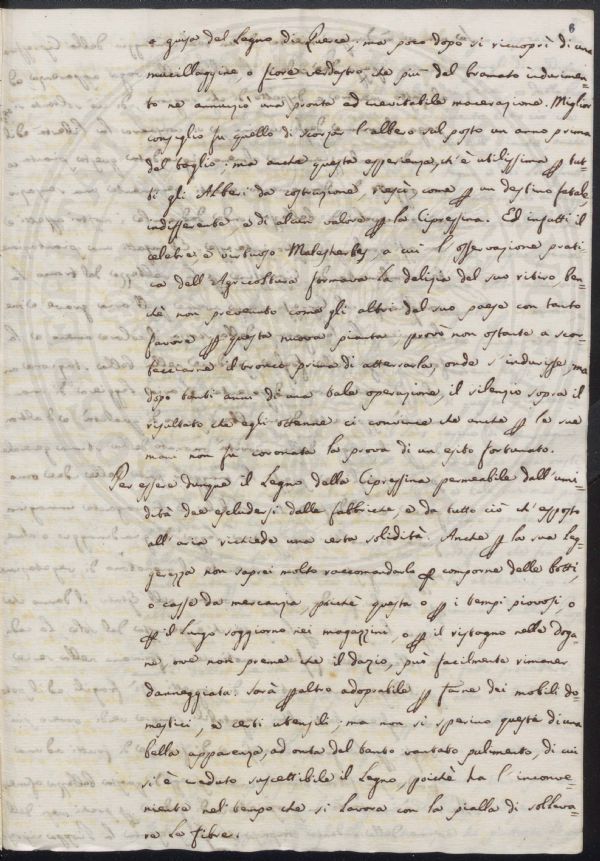 6
a guisa del Legno di Querce; ma poco dopo si ricuoprì di una
mucillaggine o fiore verdastro, che più del bramato indurimen-
to ne annunziò una pronta ed inevitabile macerazione. Miglior
consiglio fu quello di scorzar l'albero sul posto un anno prima
del taglio; ma anche questa esperienza, ch'è utilissima p tut-
ti gli Alberi da costruzione, riescì, come p un destino fatale,
indifferente, e di alcun valore p la Cipressina. Ed infatti il
celebre e virtuoso Malesherbes, a cui l'osservazione prati-
ca dell'Agricoltura formava la delizia del suo ritiro, ben-
chè non prevenuto come gli altri del suo paese con tanto
favore p questa nuova pianta, provò non ostante a scor-
tecciarne il tronco prima di atterrarla, onde s'indurisse; ma
dopo tanti anni di una tale operazione, il silenzio sopra il
risultato che egli ottenne ci convince che anche p le sue
mani non fu coronata la prova di un esito fortunato.
Per essere dunque il Legno della Cipressina permeabile dall'umi-
dità dee escludersi dalle fabbriche, e da tutto ciò ch'esposto
all'aria richiede una certa solidità. Anche p la sua leg-
gerezza non saprei molto raccomandarlo p comporne delle botti,
o casse da mercanzia, poichè questa o p i tempi piovosi, o
p il lungo soggiorno nei magazzini, o p il ristagno nelle doga-
ne, ove non preme che il dazio, può facilmente rimaner
danneggiata. Sarà paltro adoprabile p farne dei mobili do-
mestici, e certi utensili; ma non si sperino questi di una
bella apparenza, ad onta del tanto vantato pulimento, di cui
si è creduto suscettibile il Legno, poichè ha l'inconve-
niente nel tempo che si lavora con la pialla di solleva-
re le fibre.